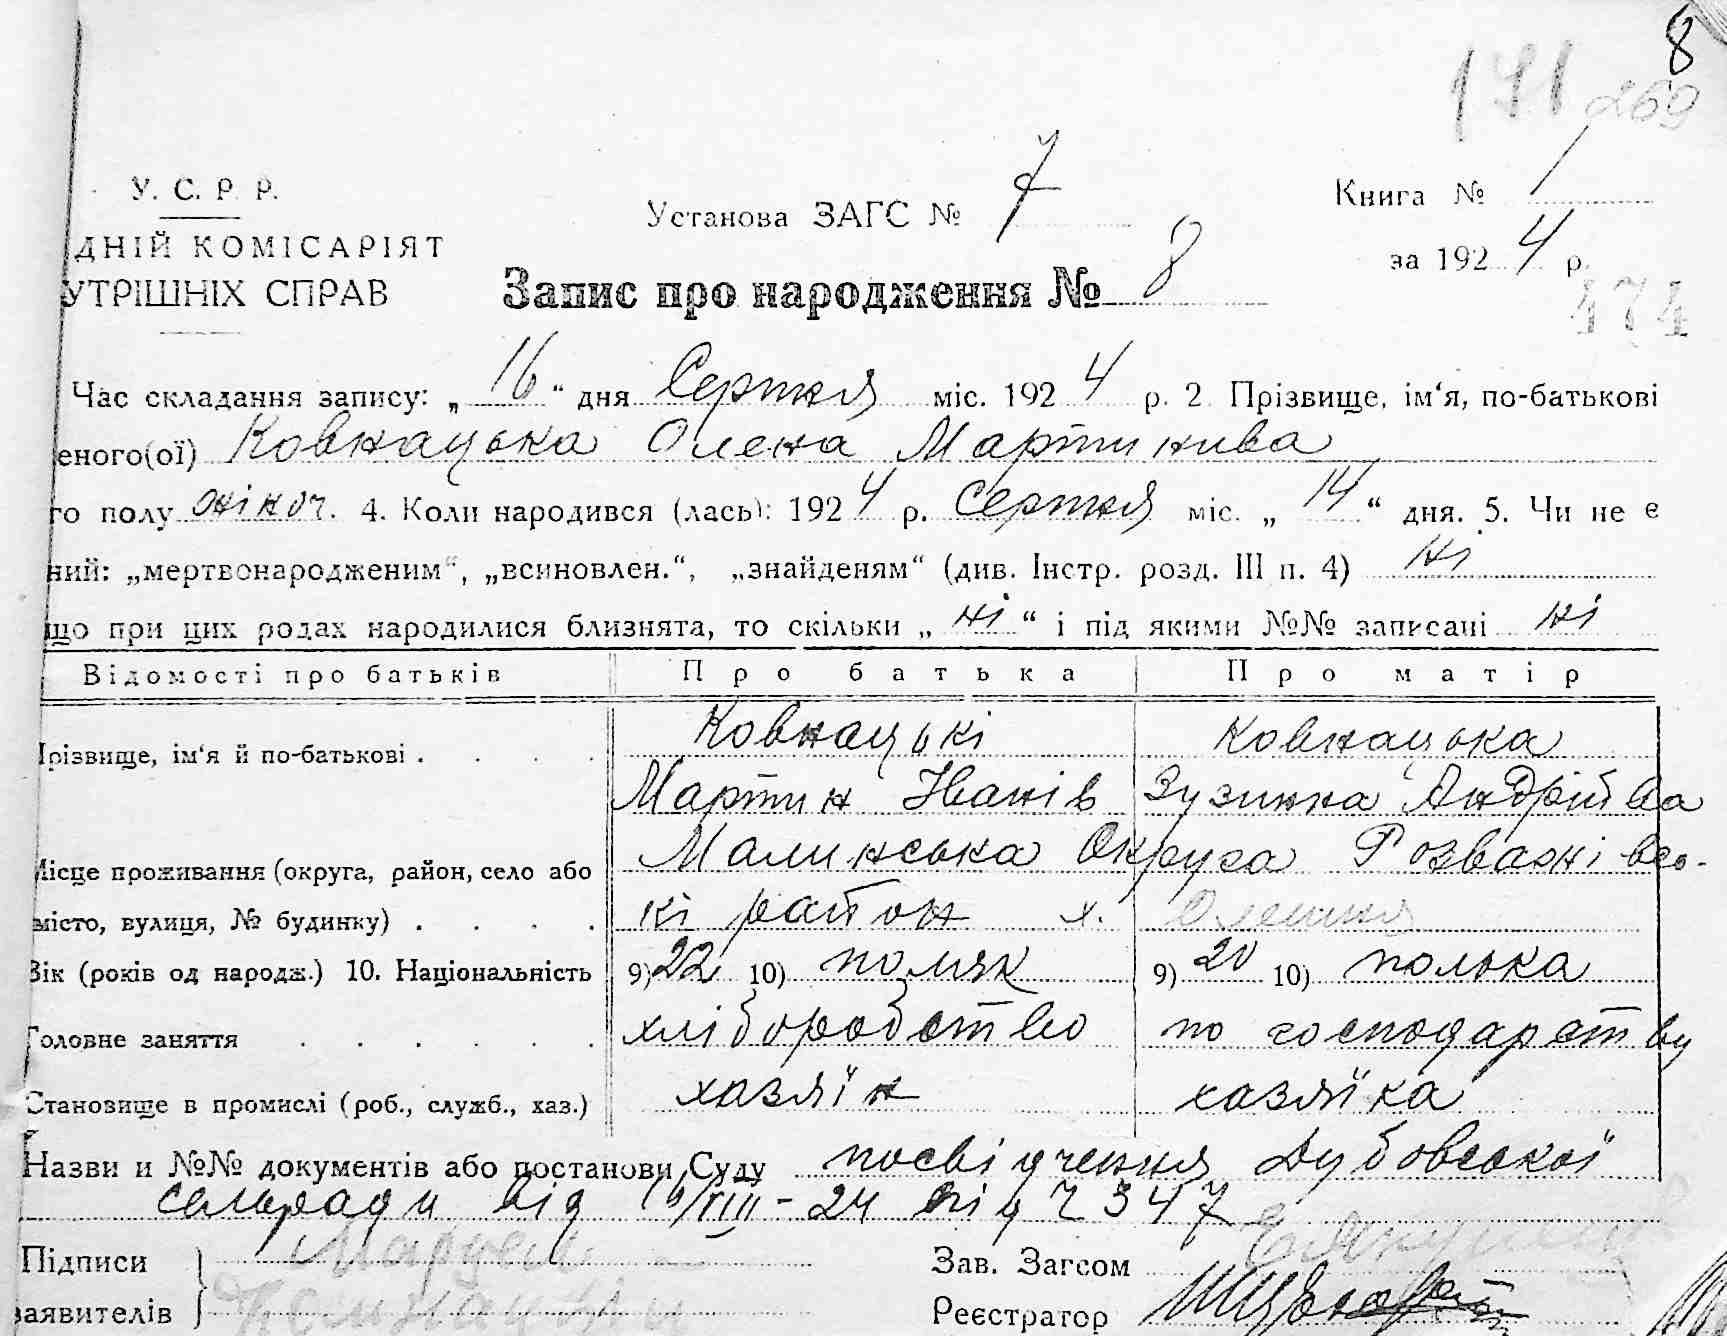 8
191 269
У. С. Р. Р.
ДНІЙ КОМІСАРІЯТ
УТРІШНІХ СПРАВ
Установа ЗАГС № 7
Книга № 1
за 1924 р.
Запис про народження № 8
474
Час складання запису: „ 16 “ дня Серпня міс. 1924 р. 2. Прізвище, ім‘я, по-батькові
еного(ої) Ковнацька Олена Мартинива
го полу жіноч. 4. Коли народився (лась): 1924 р. Серпня міс. „ 14 “ дня. 5. Чи не є
ний: „мертвонародженим“, „всиновлен.“, „знайденям“ (див. Інстр. розд. III п. 4) ні
що при цих родах народилися близнята, то скільки „ ні “ і під якими №№ записані ні
Відомості про батьків Про батька Про матір
Прізвище, ім‘я й по-батькові . . . . Ковнацькі Ковнацька
Мартин Іванів Зузинна Андрійва
Місце проживання (округа, район, село або Малинська Округа Розважівсь-
місто, вулиця, № будинку) . . . . кі район х.
Вік (років од народж.) 10. Національність 9) 22 10) поляк 9) 20 10) полька
Головне заняття . . . . . . хліборобство по господарству
Становище в промислі (роб., служб., хаз.) хазяїн хазяїка
Назви и №№ документів або постанови Суду посвідчення Дубовської
сельради від 16/VIII-24 під ч 347
Підписи
заявителів
Зав. Загсом
Реєстратор